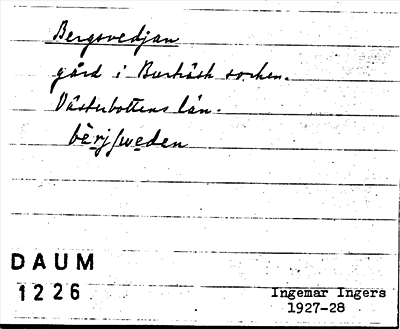 Bergsvedjan
gård i Burträsk socken.
Västerbottens län.
bèrjsweden
DAUM
1226
Ingemar Ingers
1927-28